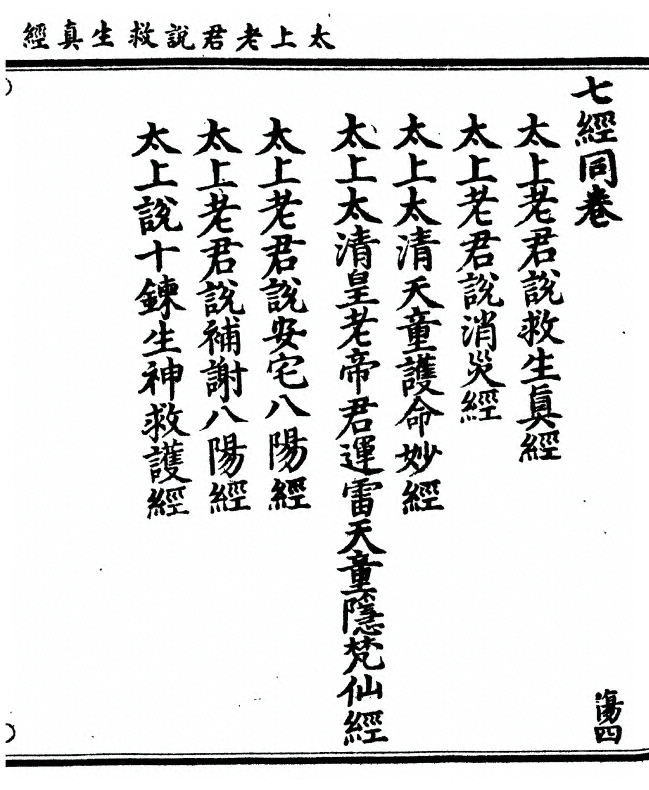 太上老君說救生真經
七經同卷
傷四
太上老君說救生眞經
太上老君說消災經
太上太清天童護命妙經
太上太清皇老帝君運雷天童隱梵仙經
太上老君說安宅八陽經
太上老君說補謝八陽經
太上說十鍊生神救護經